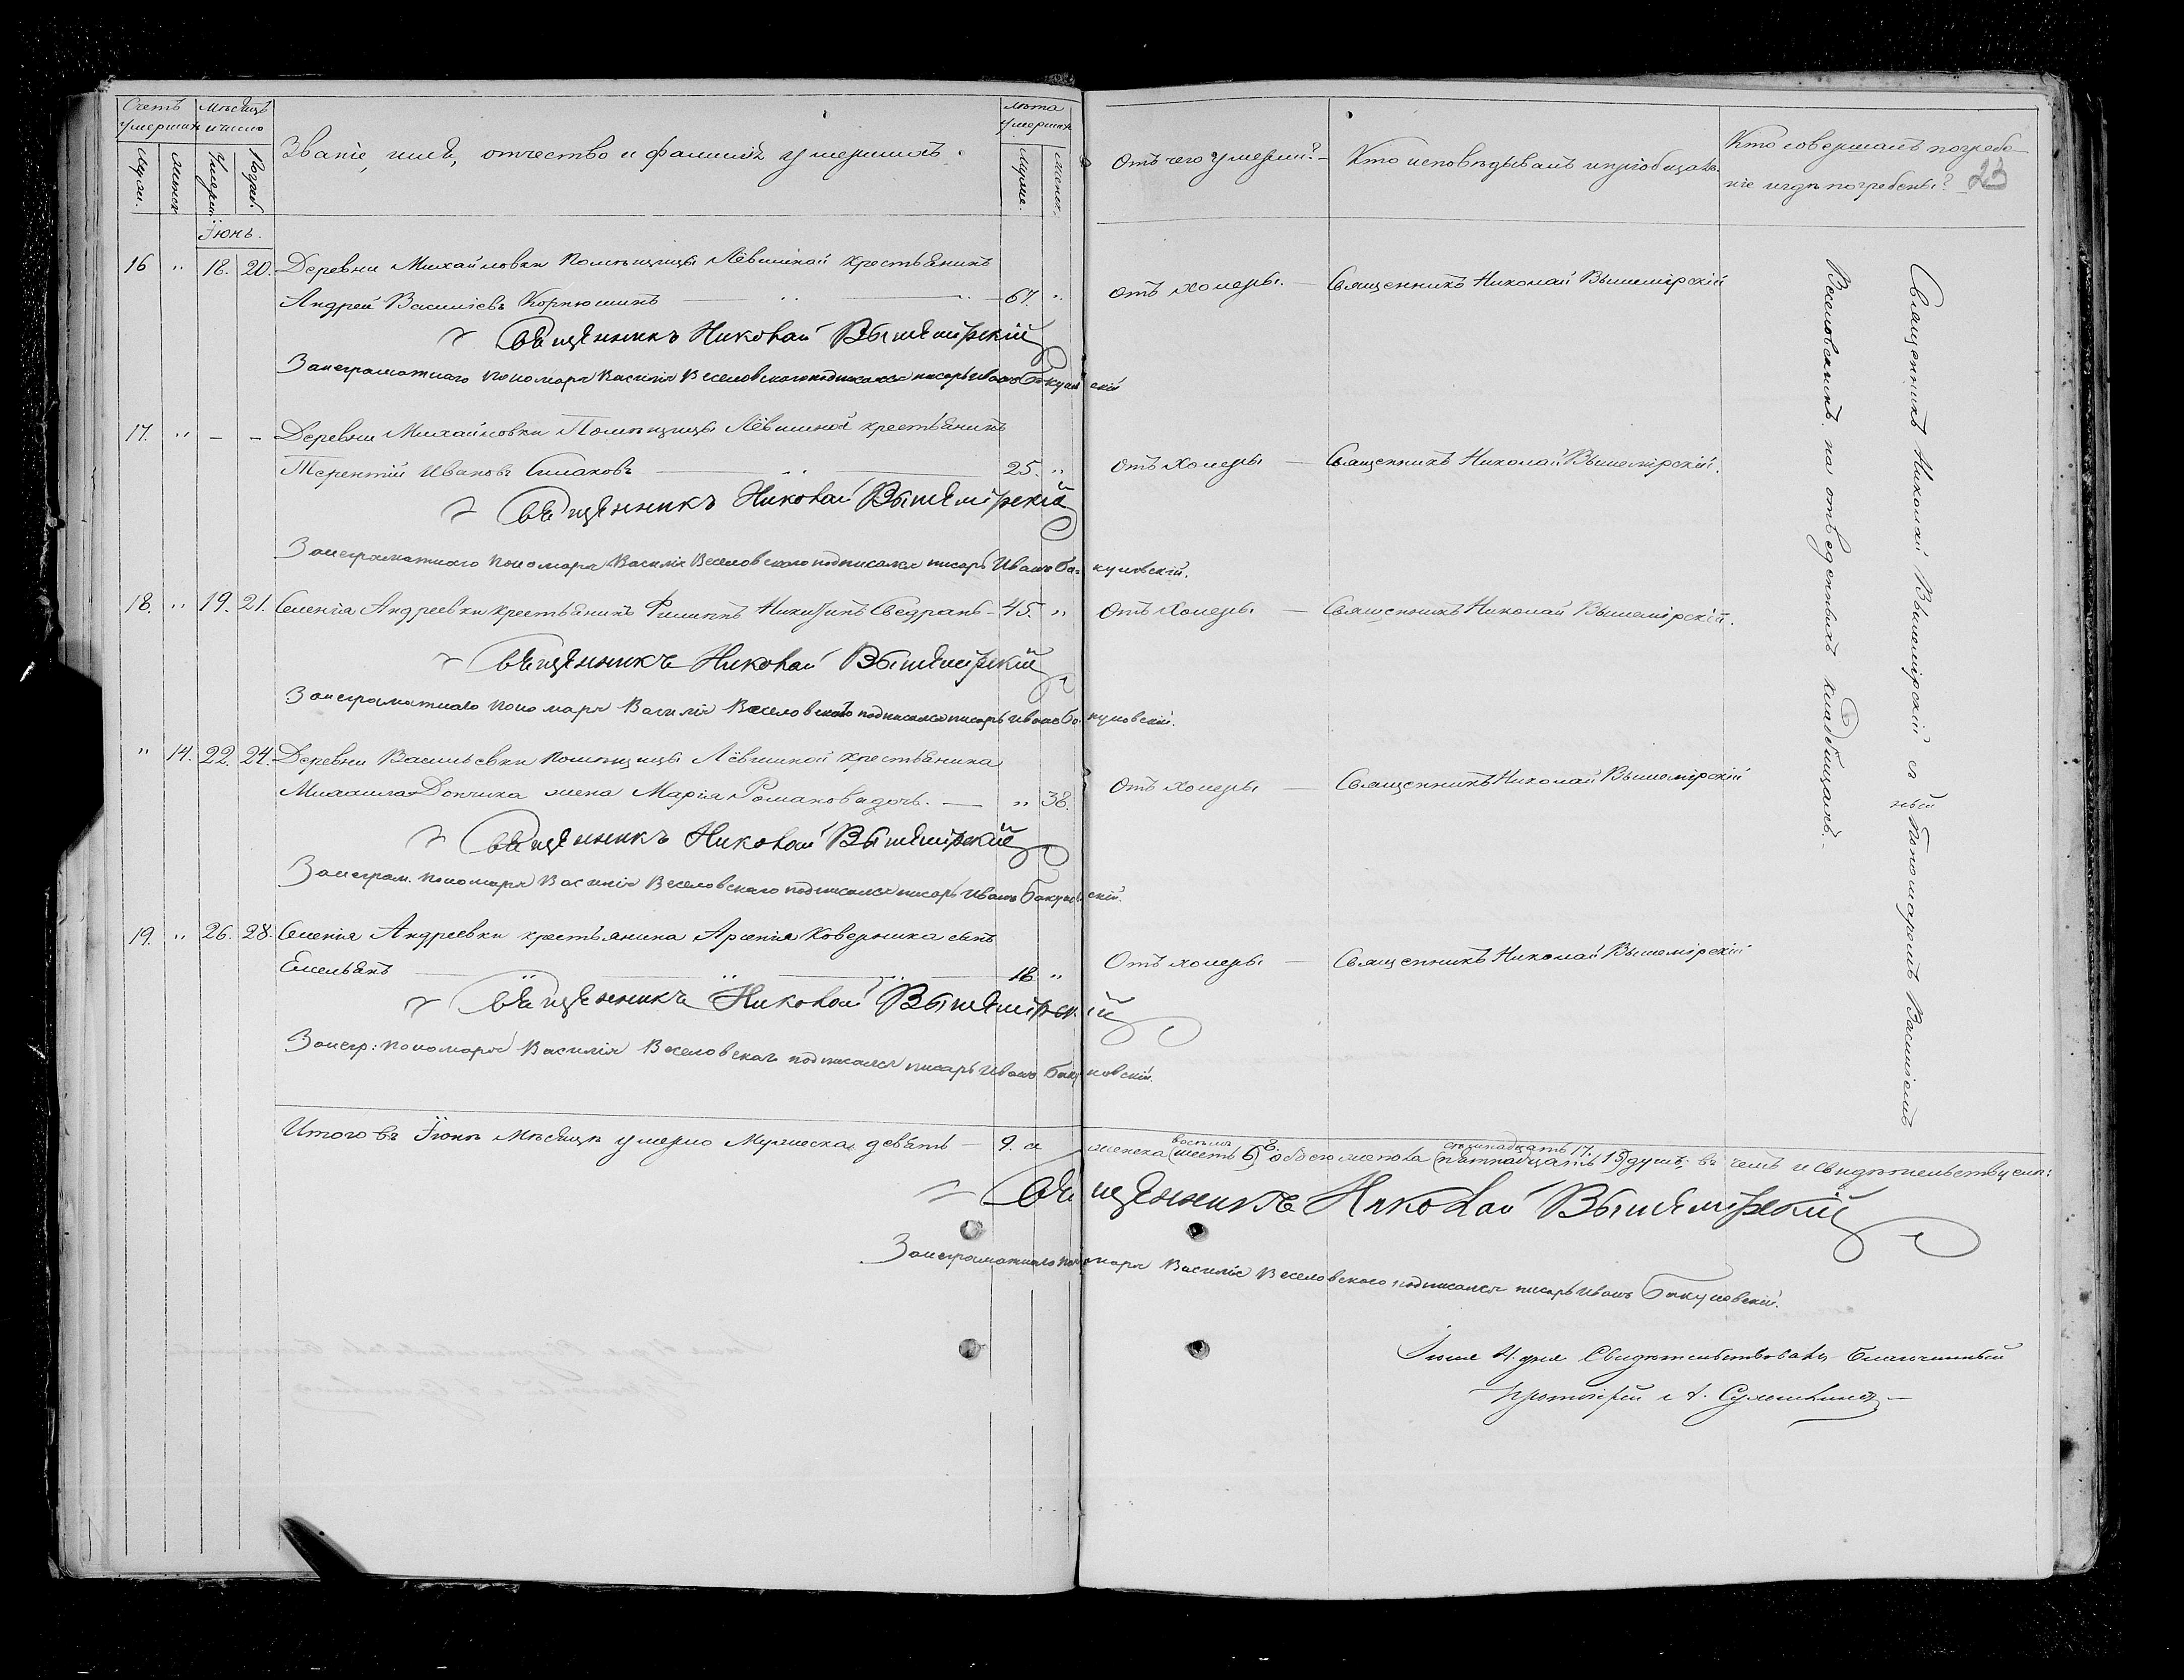 Счетъ умершихъ
Мѣсяцъ и число
Званіе, имя, отчество и фамилія умершихъ.
лѣта умершихъ
Отъ чего умерли?
Кто исповѣдывалъ и пріобщалъ.
Кто совершалъ погребе-
ніе и гдѣ погребены?
23
Муж.
Женск.
Умерш.
Погреб.
Муже.
женск.
Іюнь.
16 " 18. 20. Деревни Михайловки Помѣщицы Лёвшиной крестьянинъ
Андрей Василіевъ Корнюшинъ 67. " отъ холеры. Священникъ Николай Вышемірскій
Священникъ Николай Вышемірскій
За неграматнаго пономаря Василія Веселовскаго подписался писарь Иванъ Бакуновскій
17. " – – Деревни Михайловки Помѣщицы Лёвшиной крестьянинъ
Терентій Ивановъ Симаковъ 25. " Отъ холеры Священникъ Николай Вышемірскій.
Священникъ Николай Вышемірскій
За неграматнаго пономаря Василія Веселовскаго подписался писарь Иванъ Бакуновскій.
18. " 19. 21. Селенія Андреевки крестьянинъ Филиппъ Никитинъ 45. " Отъ Холеры Священникъ Николай Вышемірскій.
Священникъ Николай Вышемірскій
За неграматнаго пономаря Василія Веселовскаго подписался писарь Иванъ Бакуновскій.
" 14. 22. 24. Деревни Васильевки помѣщицы Лёвшиной крестьянина
Михаила Дончика жена Марія Романова дочь. " 38. Отъ холеры Священникъ Николай Вышемірскій
Священникъ Николай Вышемірскій
За неграм. пономаря Василія Веселовскаго подписался писарь Иванъ Бакуновскій.
19. " 26. 28. Селенія Андреевки крестьянина Арсенія Коверника сынъ
Емельянъ 18. " Отъ холеры Священникъ Николай Вышемірскій
Священникъ Николай Вышемірскій
За негр: пономаря Василія Веселовскаго подписался писарь Иванъ Бакуновскій.
Священникъ Николай Вышемірскій с пономаремъ Василіемъ
Веселовскимъ на отведенныхъ кладбищахъ.
восемь 8. семнадцать 17.
Итого въ Іюнѣ Мѣсяцѣ умерло Мужеска девять 9. а женска (шесть 6) обоего пола (пятнадцать 15) душъ; въ чемъ и свидѣтельствуемъ:
Священникъ Николай Вышемірскій
За неграматнаго пономаря Василія Веселовскаго подписался писарь Иванъ Бакуновскій.
Іюля 4. дня Свидѣтельствовалъ Благочинный
Протоіерей